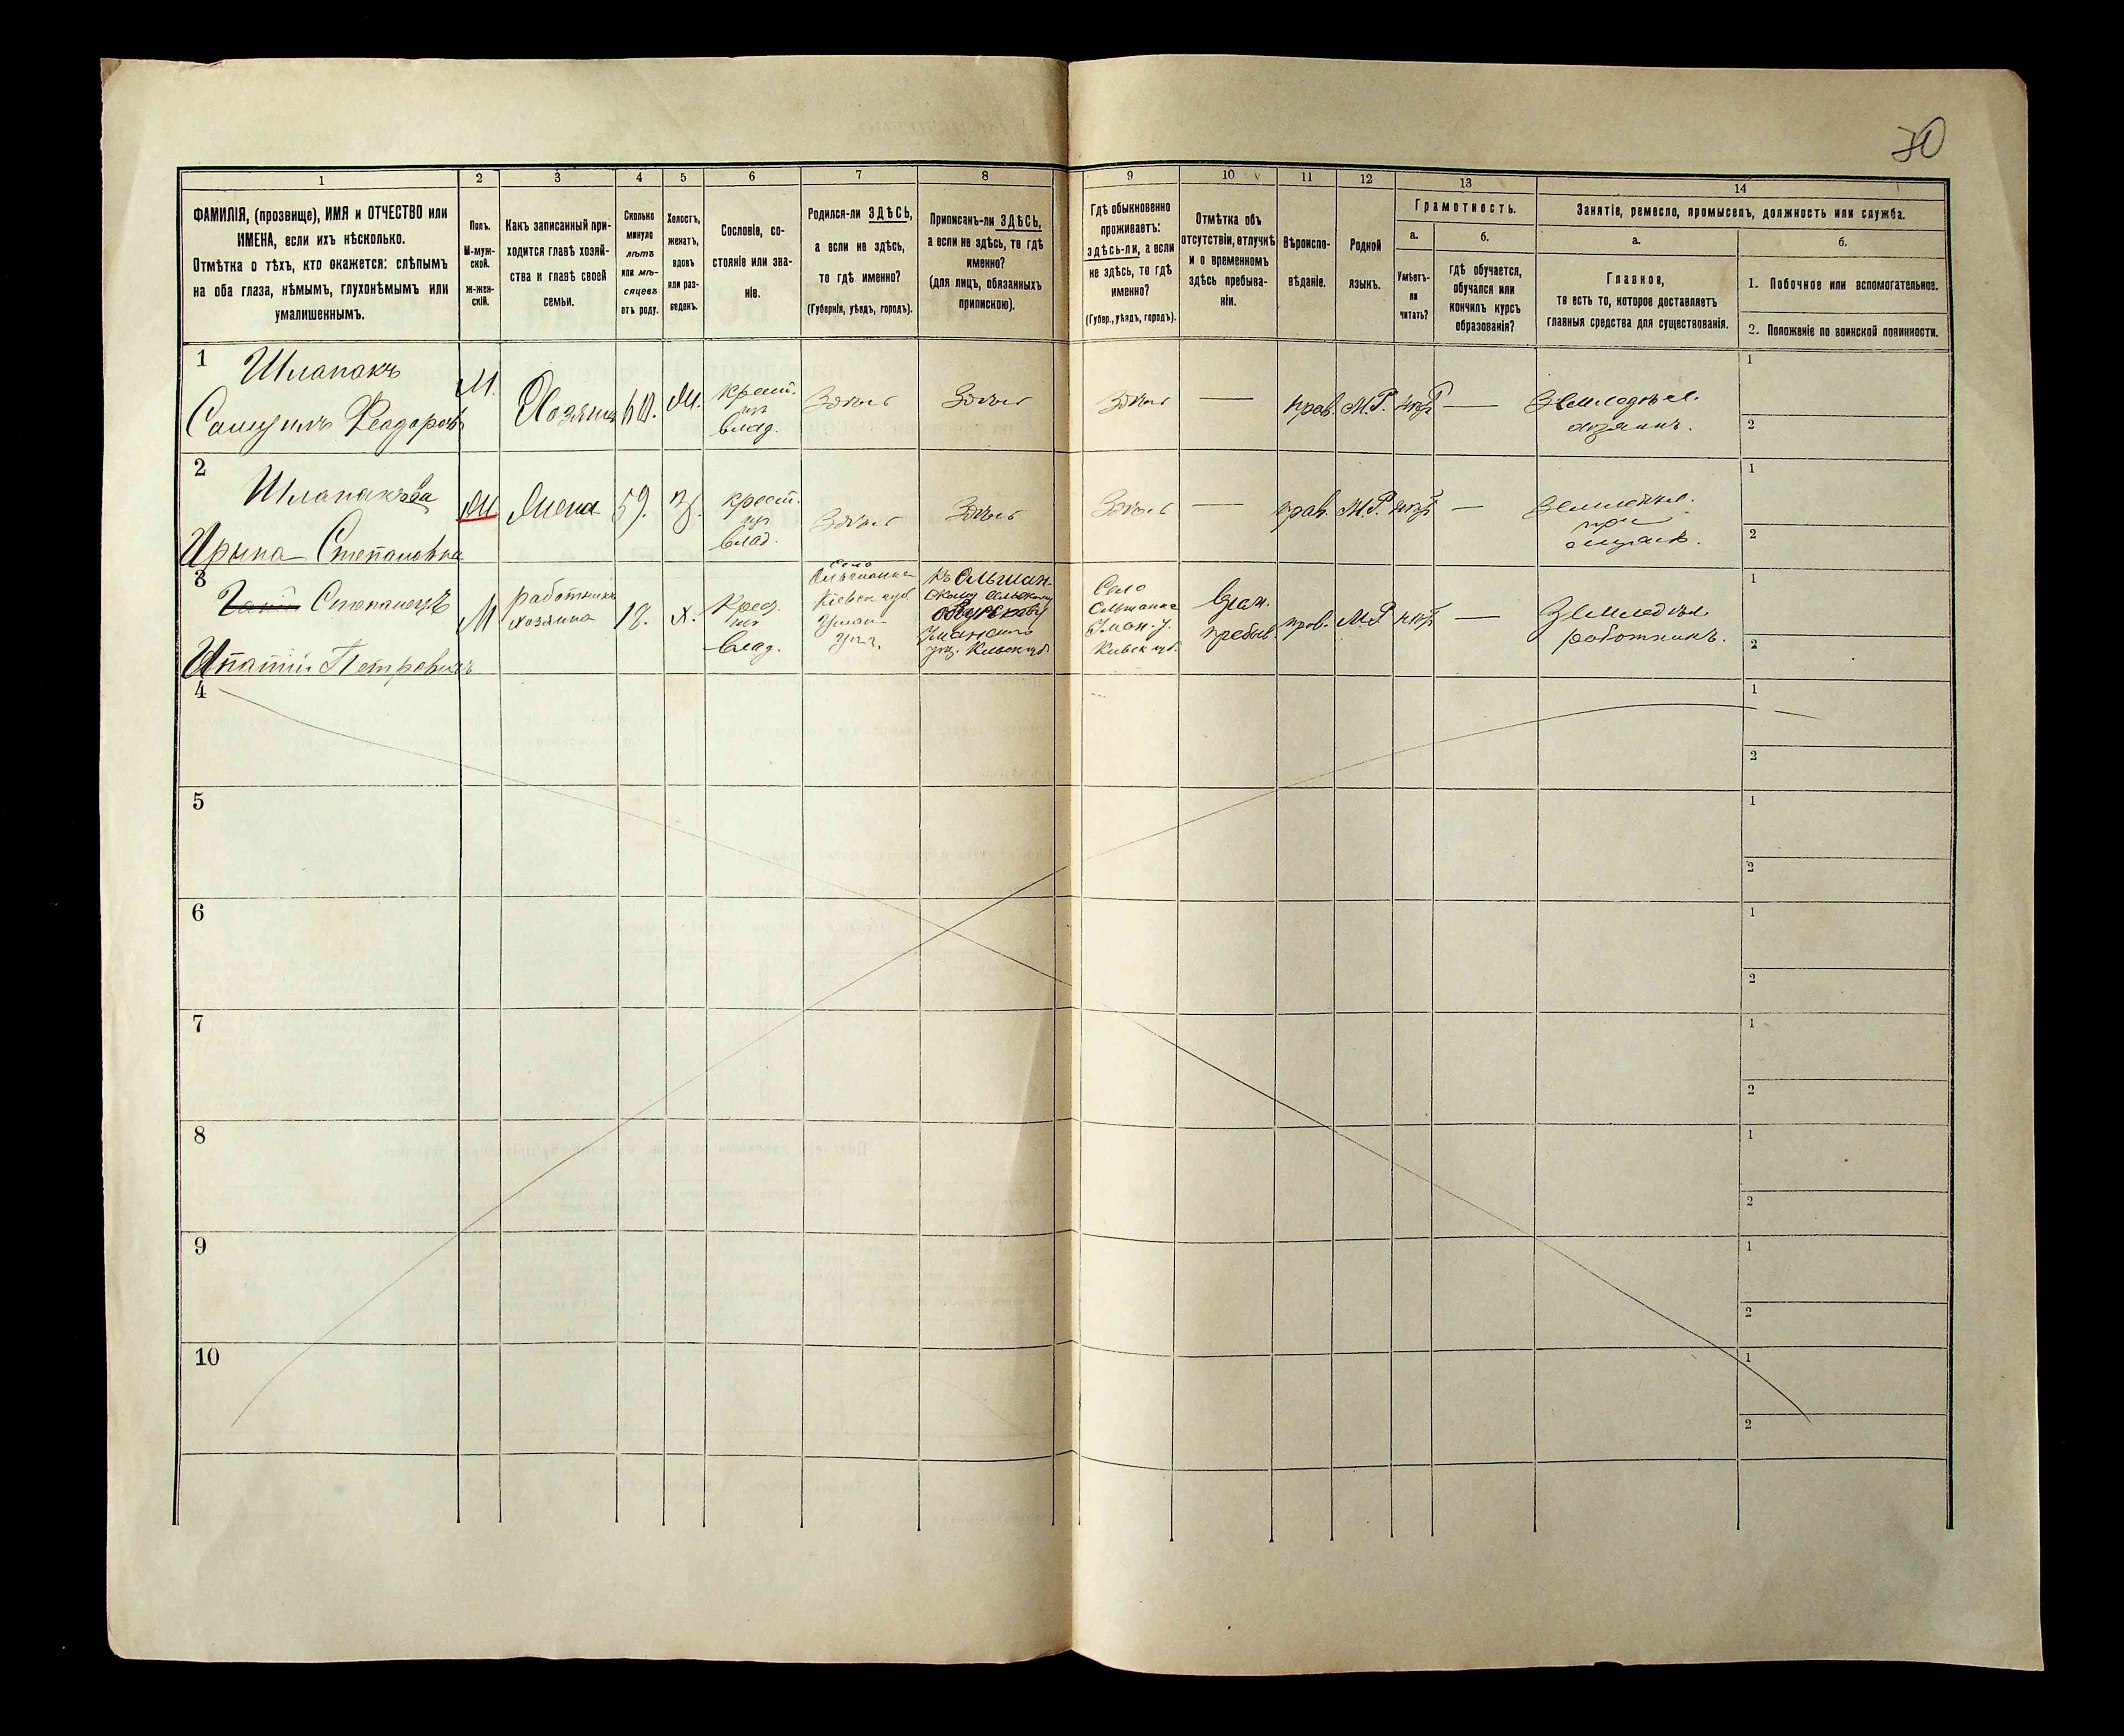 30
1
2
3
4
5
6
7
8
9
10
11
12
13
14
ФАМИЛІЯ, (прозвище), ИМЯ и ОТЧЕСТВО или
ИМЕНА, если ихъ нѣсколько.
Отмѣтка о тѣхъ, кто окажется: слѣпымъ
на оба глаза, нѣмымъ, глухонѣмымъ или
умалишеннымъ.
Полъ.
М-муж-
ской.
Ж-жен-
скій.
Какъ записанный при-
ходится главѣ хозяй-
ства и главѣ своей
семьи.
Сколько
минуло
лѣтъ
или мѣ-
сяцевъ
отъ роду.
Холостъ,
женатъ,
вдовъ
или раз-
веденъ.
Сословіе, со-
стояніе или зва-
ніе.
Родился-ли ЗДѢСЬ,
а если не здѣсь,
то гдѣ именно?
(Губернія, уѣздъ, городъ).
Приписанъ-ли ЗДѢСЬ,
а если не здѣсь, то гдѣ
именно?
(для лицъ, обязанныхъ
припискою).
Гдѣ обыкновенно
проживаетъ:
здѣсь-ли, а если
не здѣсь, то гдѣ
именно?
(Губер., уѣздъ, городъ).
Отмѣтка объ
отсутствіи, отлучкѣ
и о временномъ
здѣсь пребыва-
ніи.
Вѣроиспо-
вѣданіе.
Родной
языкъ.
Грамотность.
а.
Умѣетъ-
ли
читать?
б.
гдѣ обучается,
обучался или
кончилъ курсъ
образованія?
Занятіе, ремесло, промыселъ, должность или служба.
а.
Главное,
то есть то, которое доставляетъ
главныя средства для существованія.
б.
1. Побочное или вспомогательное.
2. Положеніе по воинской повинности.
1
Шлапакъ
Самуилъ Феодоровъ
М.
Хозяинъ
60.
крест.
влад.
Здѣсь
Здѣсь
Здѣсь
—
прав.
М.Р.
нѣтъ
—
Земледѣл.
хозяинъ.
1
2
2
Шлапакова
Ирына Степановна
М
Жена
59.
крест.
влад.
Здѣсь
Здѣсь
Здѣсь
—
прав.
М.Р.
нѣтъ
—
при
1
2
3
Степанецъ
Ипатій Петровичъ
М
работникъ
хозяина
18.
х.
влад.
Село
Кіевск губ.
Уман.
Къ Ольшан-
скому сельскому
Уманского
Село
Ольшанка
Уман. у.
Киевск губ.
Врем.
пребыв.
прав.
М.Р
нѣтъ
—
Земледѣл
работникъ.
1
2
4
1
2
5
1
2
6
1
2
7
1
2
8
1
2
9
1
2
10
1
2